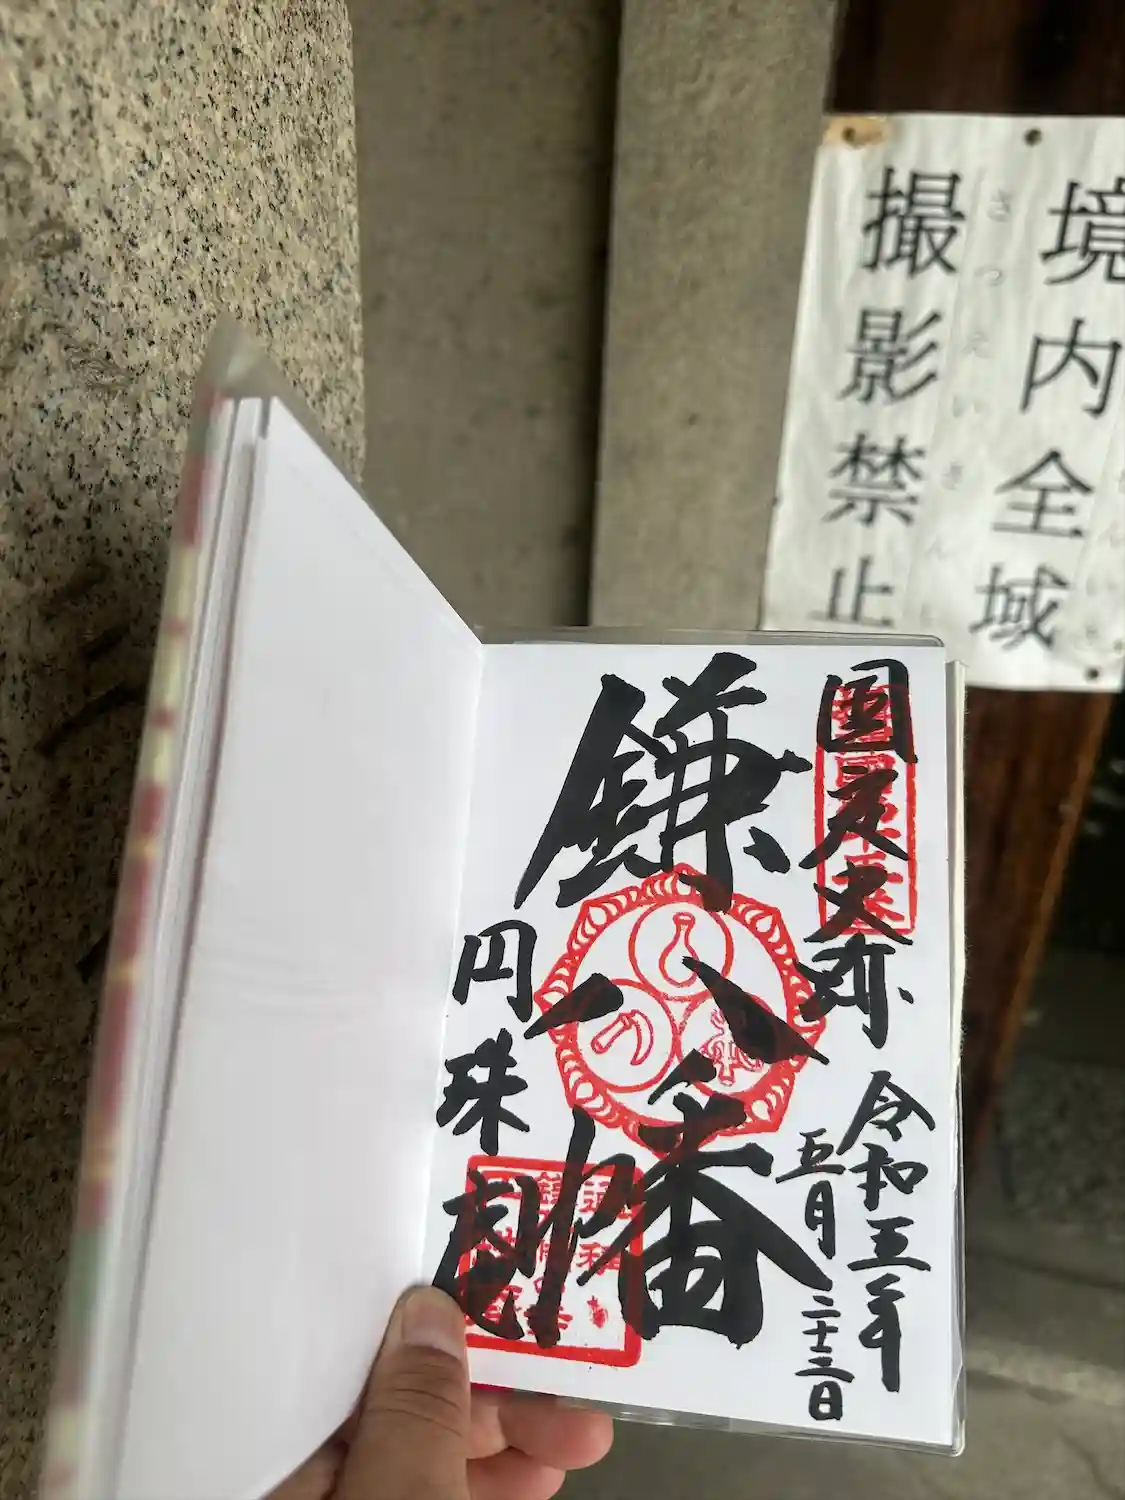 境内全域
さつえいきんし
撮影禁止
国定史跡
令和三年
五月二十三日
鎌八幡
円珠庵